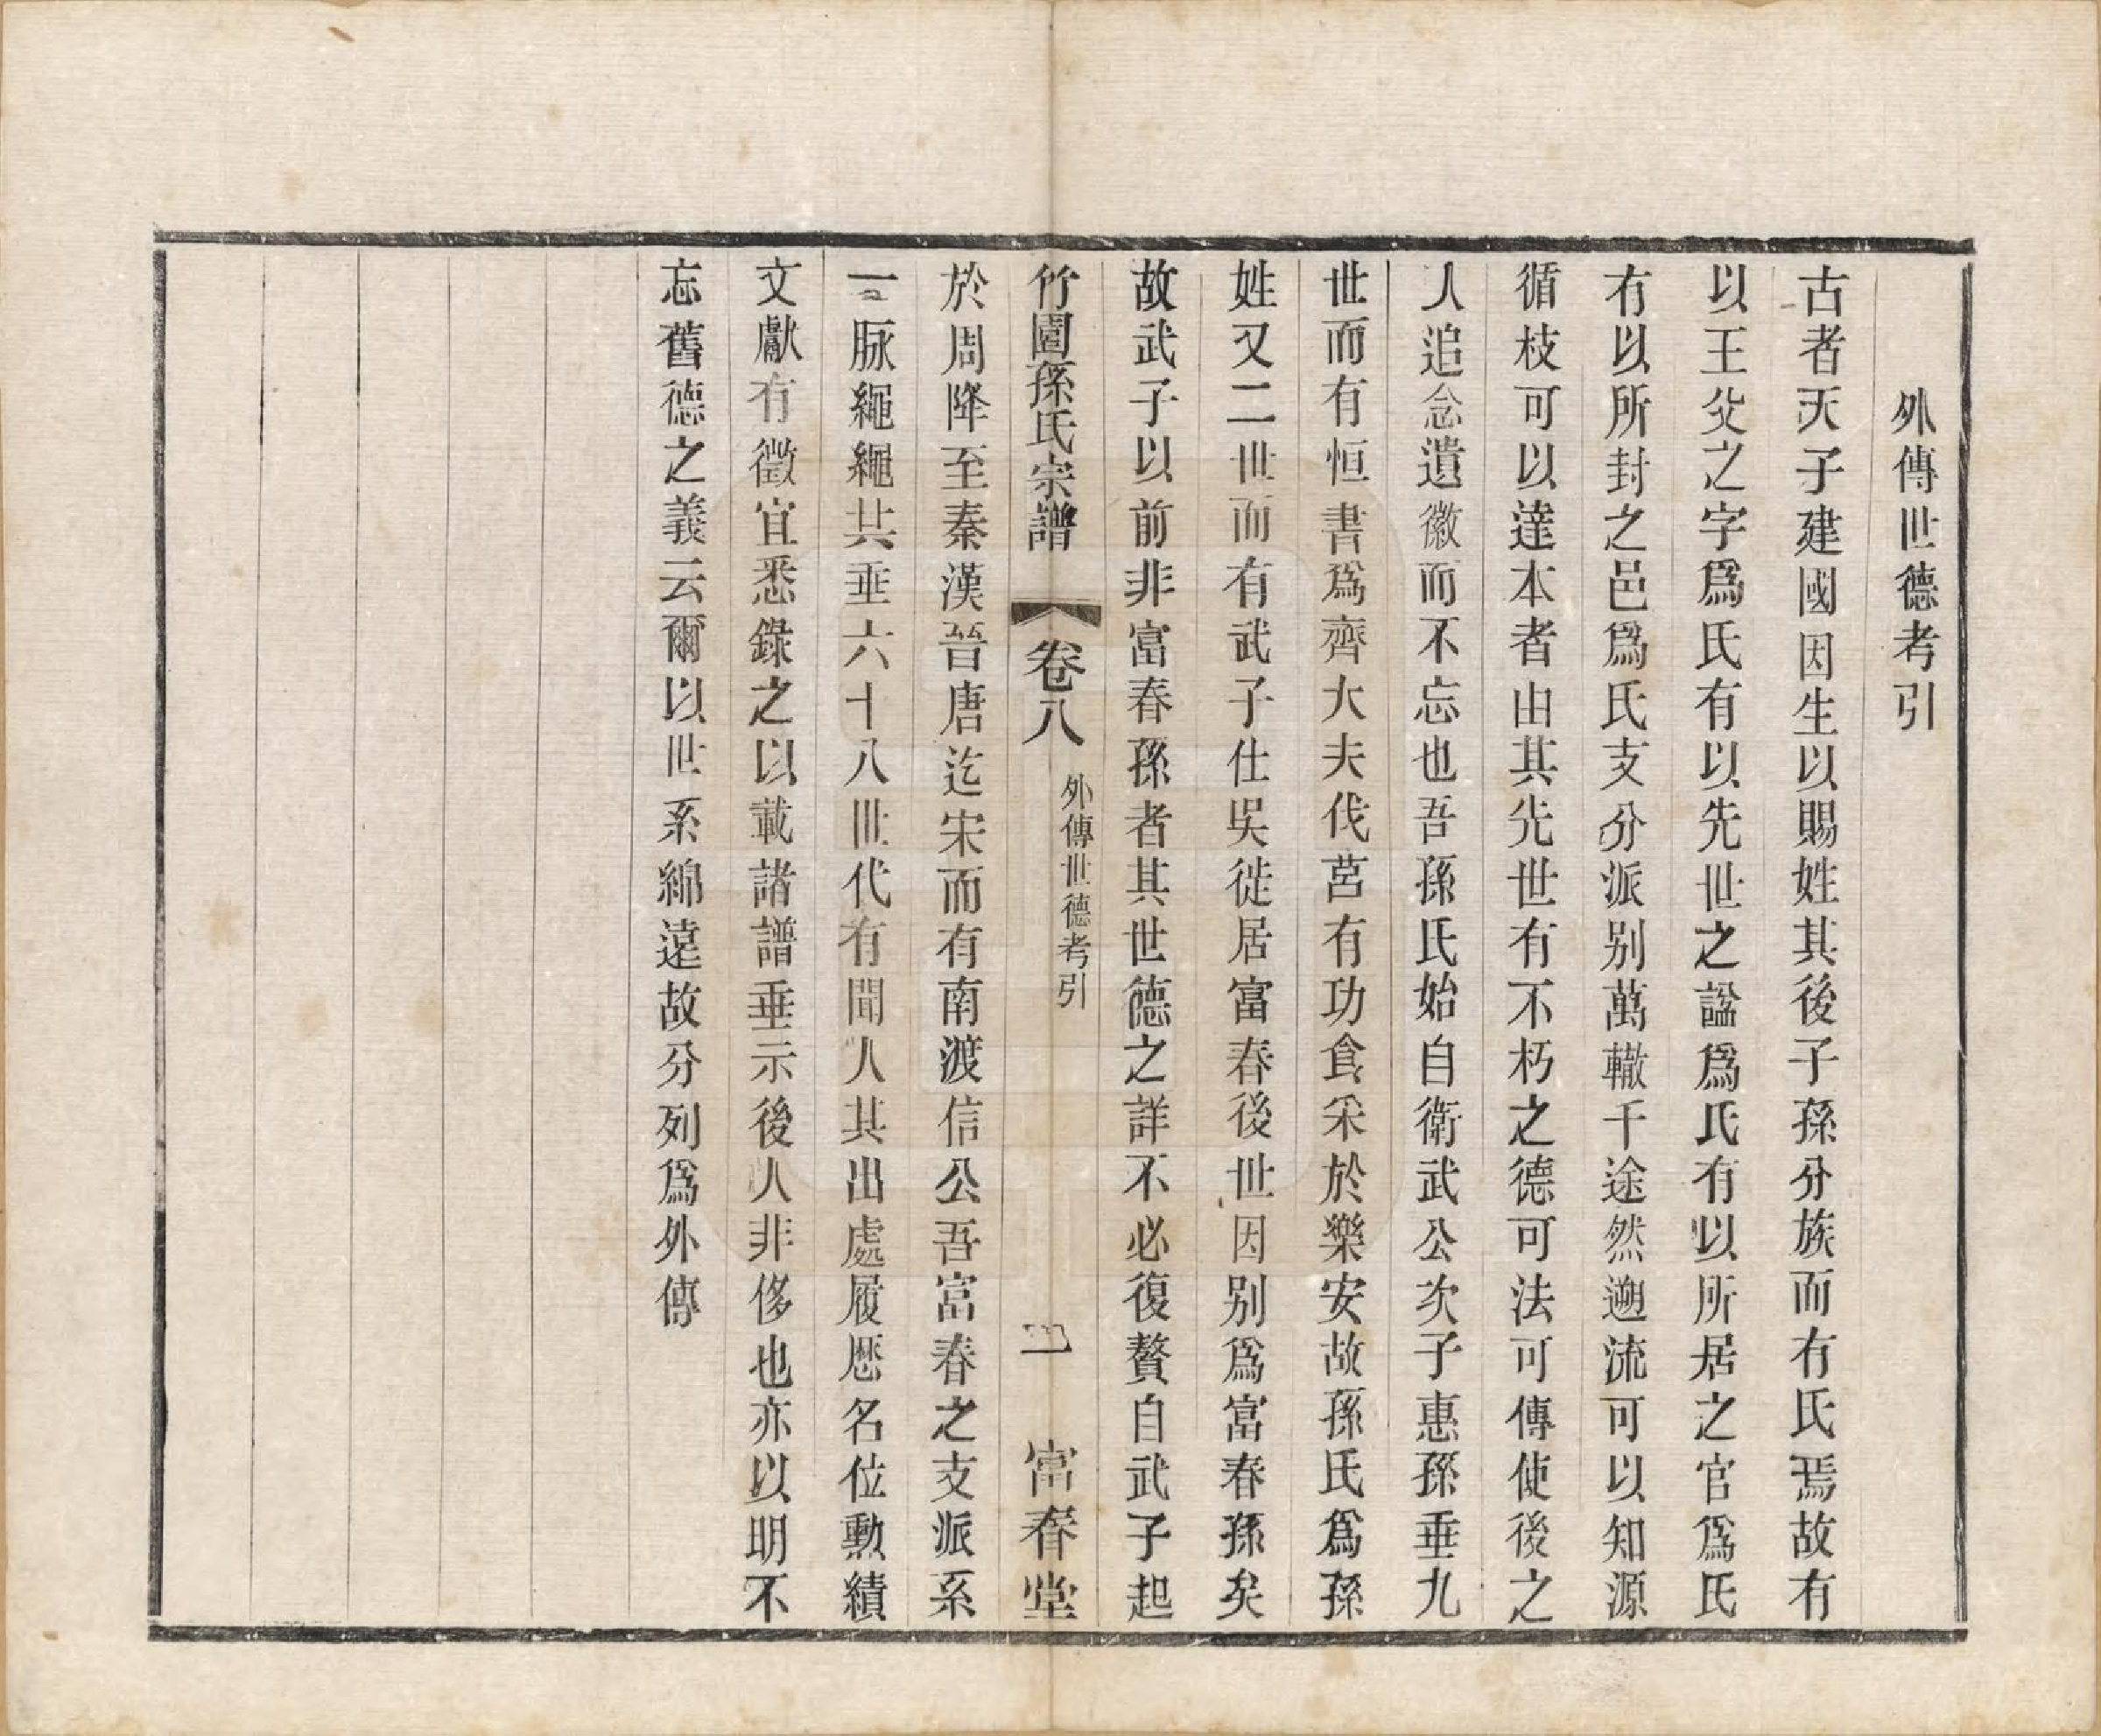 外傳世德考引
古者天子建國因生以賜姓其後子孫分族而有氏焉故有
以王父之字爲氏有以先世之諡爲氏有以所居之官爲氏
有以所封之邑爲氏支分派别萬轍千途然遡流可以知源
循枝可以達本者由其先世有不朽之德可法可傳使後之
人追念遺徽而不忘也吾孫氏始自衛武公次子惠孫垂九
世而有恒書爲齊大夫伐莒有功食采於樂安故孫氏爲孫
姓又二世而有武子仕吳徙居富春後世因别爲富春孫矣
故武子以前非富春孫者其世德之詳不必復贅自武子起
竹園孫氏宗譜
卷八
外傳世德考引
一
富春堂
於周降至秦漢晉唐迄宋而有南渡信公吾富春之支派系
一脉繩繩共垂六十八世代有聞人其出處履歴名位勲績
文獻有徵宜悉錄之以載諸譜垂示後人非侈也亦以明不
忘舊德之義云爾以世系綿遠故分列爲外傳